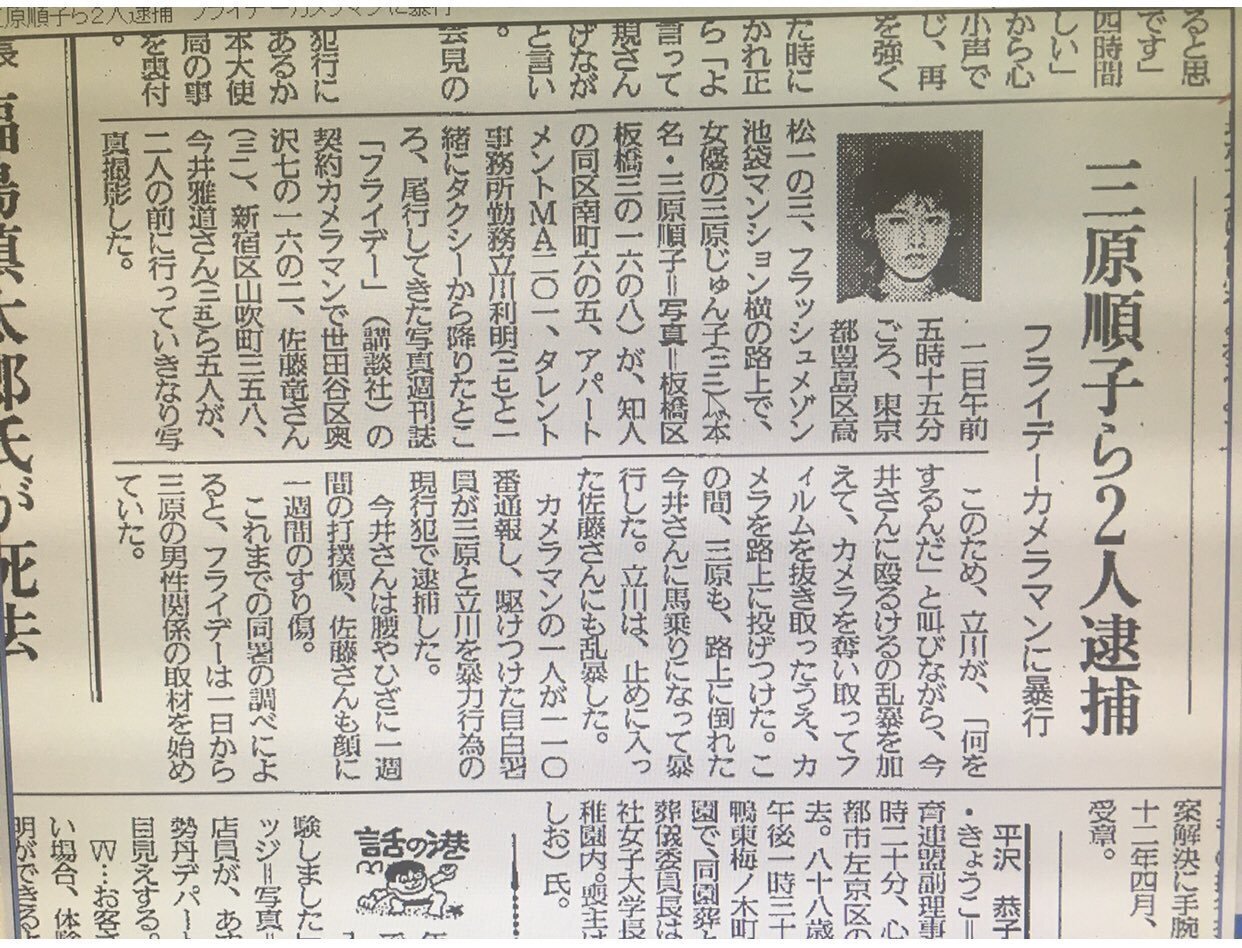 三原順子ら2人逮捕 フライデーカメラマンに暴行
ると思
です」
四時間
しい」
から心
小声で
じ、再
を強く
た時に
かれ正
ら「よ
言って
規さん
げなが
と言い
。
会見の
犯行に
あるか
本大使
局の事
を裏付
。
三原順子ら2人逮捕
フライデーカメラマンに暴行
二日午前
五時十五分
ごろ、東京
都豊島区高
松一の三、フラッシュメゾン
池袋マンション横の路上で、
女優の三原じゅん子(二二)(本
名・三原順子=写真=板橋区
板橋三の一六の八)が、知人
の同区南町六の五、アパート
メントMA二〇一、タレント
事務所勤務立川利明(三七)と一
緒にタクシーから降りたとこ
ろ、尾行してきた写真週刊誌
「フライデー」(講談社)の
契約カメラマンで世田谷区奥
沢七の一六の二、佐藤竜さん
(三二)、新宿区山吹町三五八、
今井雅道さん(三五)ら五人が、
二人の前に行っていきなり写
真撮影した。
このため、立川が、「何を
するんだ」と叫びながら、今
井さんに殴るけるの乱暴を加
えて、カメラを奪い取ってフ
ィルムを抜き取ったうえ、カ
メラを路上に投げつけた。こ
の間、三原も、路上に倒れた
今井さんに馬乗りになって暴
行した。立川は、止めに入っ
た佐藤さんにも乱暴した。
カメラマンの一人が一一〇
番通報し、駆けつけた目白署
員が三原と立川を暴力行為の
現行犯で逮捕した。
今井さんは腰やひざに一週
間の打撲傷、佐藤さんも顔に
一週間のすり傷。
これまでの同署の調べによ
ると、フライデーは一日から
三原の男性関係の取材を始め
ていた。
長 福島慎太郎氏が死去
案解決に手腕
十二年四月、
受章。
平沢 恭子
・きょうこ=
育連盟副理事
時二十分、心
都市左京区の
去。八十八歳
午後一時三十
鴨東梅ノ木町
園で、同園葬と
葬儀委員長は
社女子大学長
稚園内。喪主は
しお)氏。
話の港
験しました」
ッジ=写真=
店員が、あ
勢丹デパート
目見えする。
W…お客さ
い場合、体験
明ができるよ